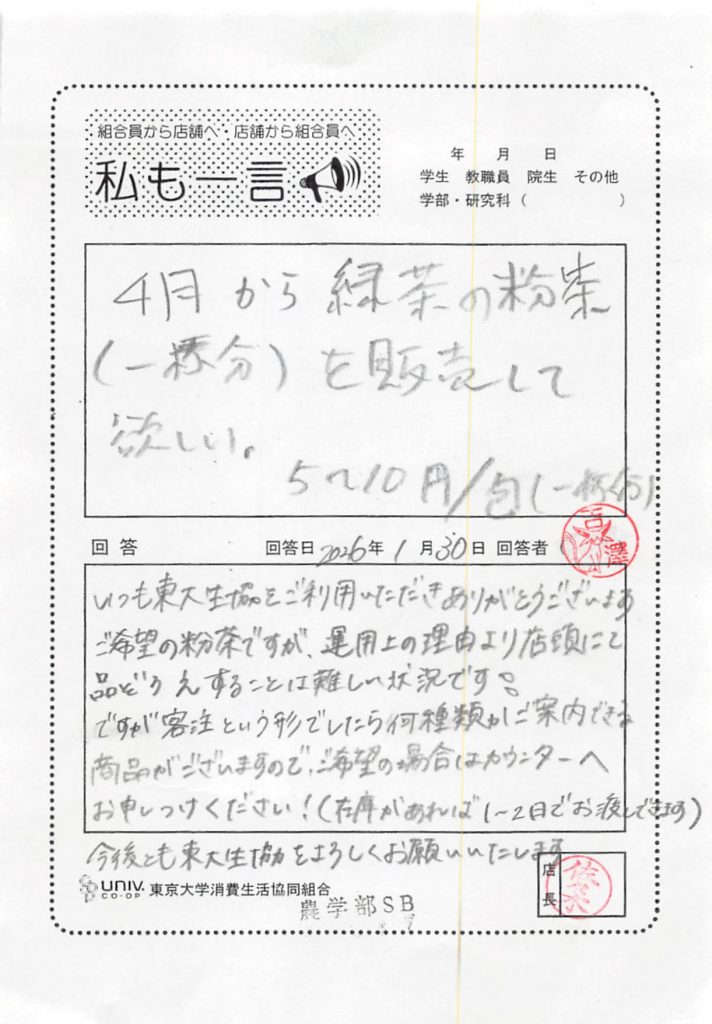 組合員から店舗へ・店舗から組合員へ
私も一言
年 月 日
学生 教職員 院生 その他
学部・研究科（ ）
4月から緑茶の粉茶
(一杯分)を販売して
欲しい。
5〜10円/包(一杯分)
回答 回答日 2026年 1月30日 回答者
いつも東大生協をご利用いただきありがとうございます
ご希望の粉茶ですが、運用上の理由より店頭にて
品ぞろえすることは難しい状況です。
ですが客注という形でしたら何種類かご案内できる
商品がございますので、ご希望の場合はカウンターへ
お申しつけください!(在庫があれば1〜2日でお渡しできます)
今後とも東大生協をよろしくお願いいたします
UNIV. CO-OP 東京大学消費生活協同組合
農学部SB
店長